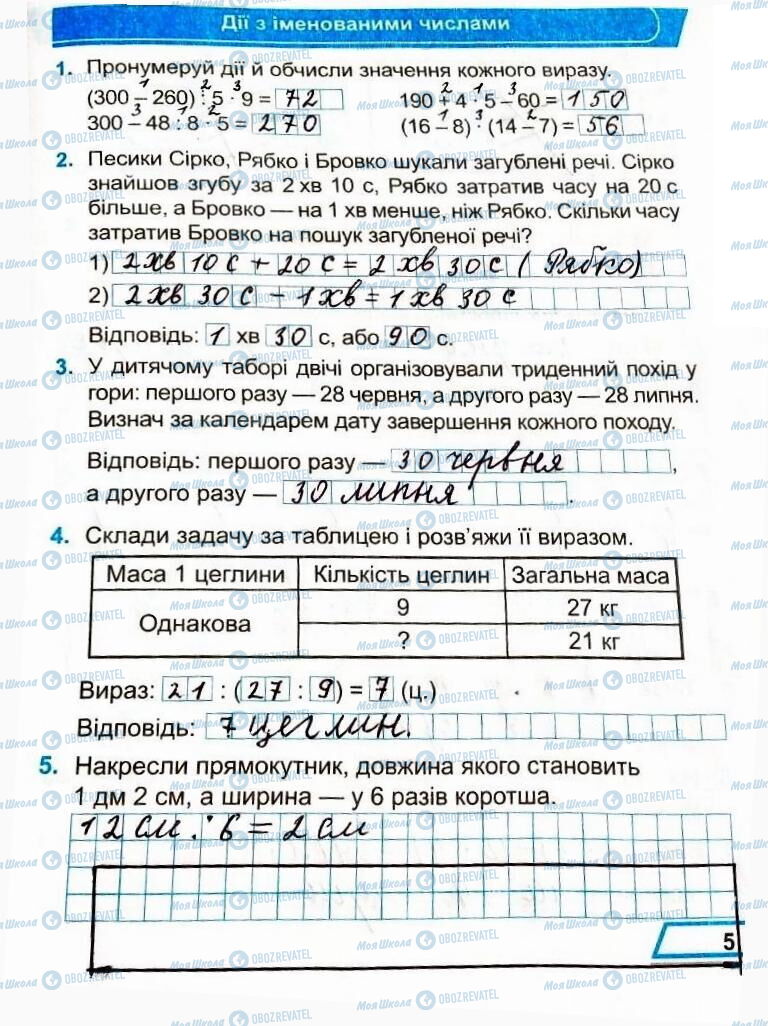 Дії з іменованими числами
1. Пронумеруй дії й обчисли значення кожного виразу.
(300 – 260) : 5 · 9 = 72
190 + 4 · 5 – 60 = 150
300 – 48 : 8 · 5 = 270
(16 – 8) · (14 – 7) = 56
2. Песики Сірко, Рябко і Бровко шукали загублені речі. Сірко
знайшов згубу за 2 хв 10 с, Рябко затратив часу на 20 с
більше, а Бровко — на 1 хв менше, ніж Рябко. Скільки часу
затратив Бровко на пошук загубленої речі?
1) 2 хв 10 с + 20 с = 2 хв 30 с ( Рябко)
2) 2 хв 30 с – 1 хв = 1 хв 30 с
Відповідь: 1 хв 30 с, або 90 с.
3. У дитячому таборі двічі організовували триденний похід у
гори: першого разу — 28 червня, а другого разу — 28 липня.
Визнач за календарем дату завершення кожного походу.
Відповідь: першого разу — 30 червня ,
а другого разу — 30 липня .
4. Склади задачу за таблицею і розв’яжи її виразом.
Маса 1 цеглини Кількість цеглин Загальна маса
Однакова 9 27 кг
? 21 кг
Вираз: 21 : ( 27 : 9 ) = 7 (ц.)
Відповідь: 7 цеглин.
5. Накресли прямокутник, довжина якого становить
1 дм 2 см, а ширина — у 6 разів коротша.
12 см : 6 = 2 см
5
МояШкола OBOZREVATEL